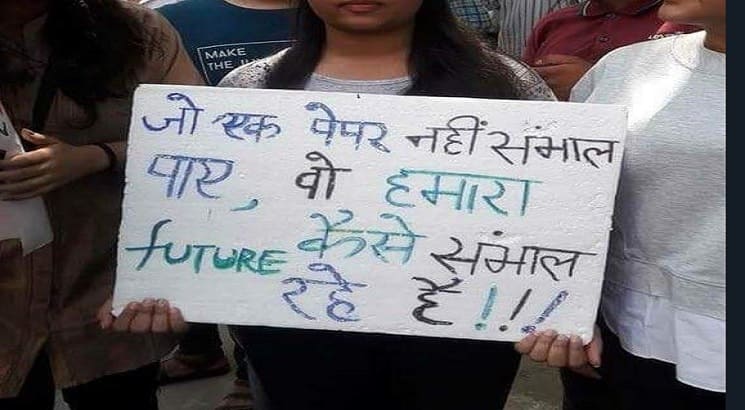 MAKE
THE
जो एक पेपर नहीं संभाल
पाए, वो हमारा
FUTURE कैसे संभाल
रहे हैं!!!